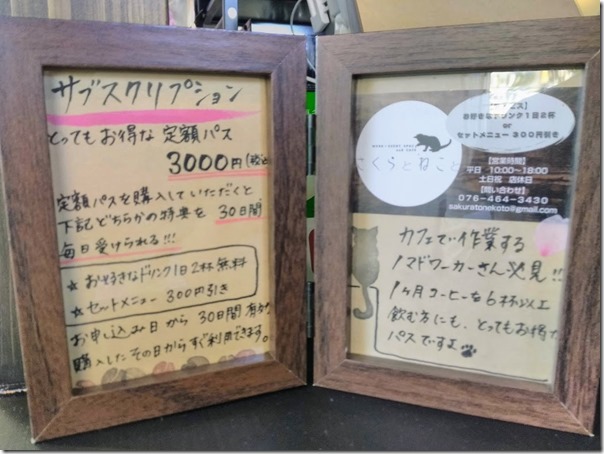 サブスクリプション
とってもお得な定額パス
3000円(税込
定額パスを購入していただくと
下記どちらかの特典を30日間
毎日受けられる!!!
★お好きなドリンク1日2杯無料
★セットメニュー 300円引き
お申し込み日から30日間有効
購入したその日からすぐ利用できます。
お好きなドリンク1日2杯
or
セットメニュー 300円引き
さくらとねこと
【営業時間】
平日 10:00~18:00
土日祝 店休日
【問い合わせ】
076-464-3430
sakuratonekoto@gmail.com
カフェで作業する
ノマドワーカーさん必見!!
1ヶ月コーヒーを6杯以上
飲む方にも、とってもお得な
パスですよ